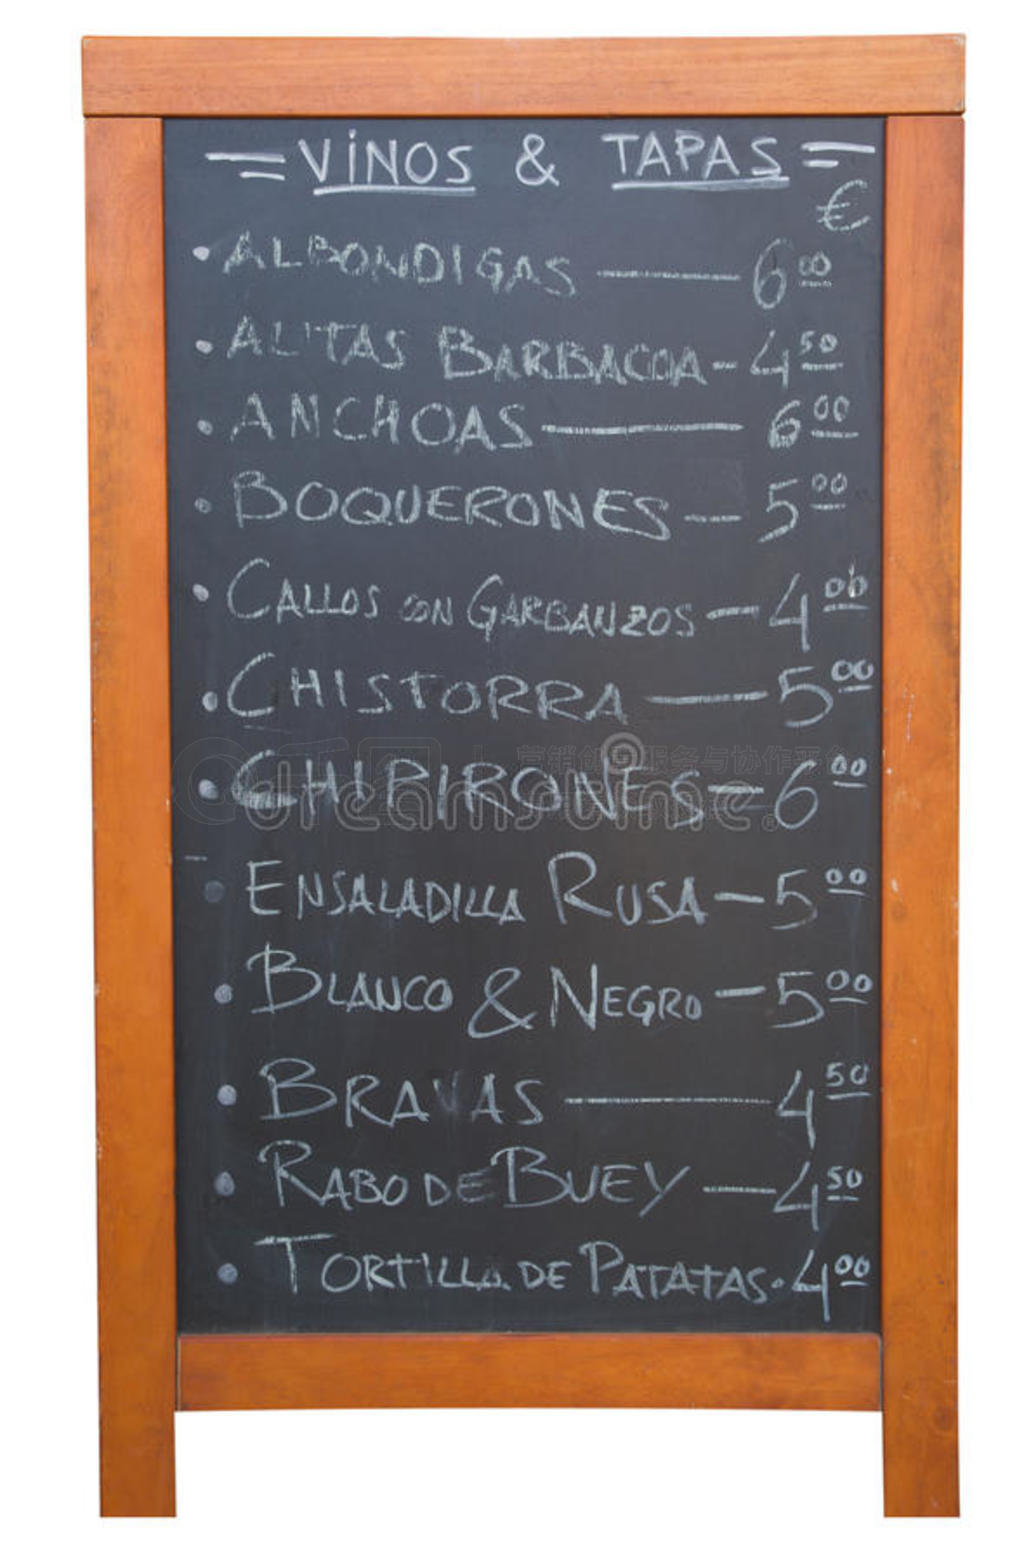 = VINOS & TAPAS =
€
• ALBONDIGAS — 6 00
• ALITAS BARBACOA - 4 50
• ANCHOAS — 6 00
• BOQUERONES — 5 00
• CALLOS CON GARBANZOS — 4 00
• CHISTORRA — 5 00
• CHIPIRONES — 6 00
• ENSALADILLA RUSA — 5 00
• BLANCO & NEGRO — 5 00
• BRAVAS — 4 50
• RABO DE BUEY — 4 50
• TORTILLA DE PATATAS · 4 00
dreamstime